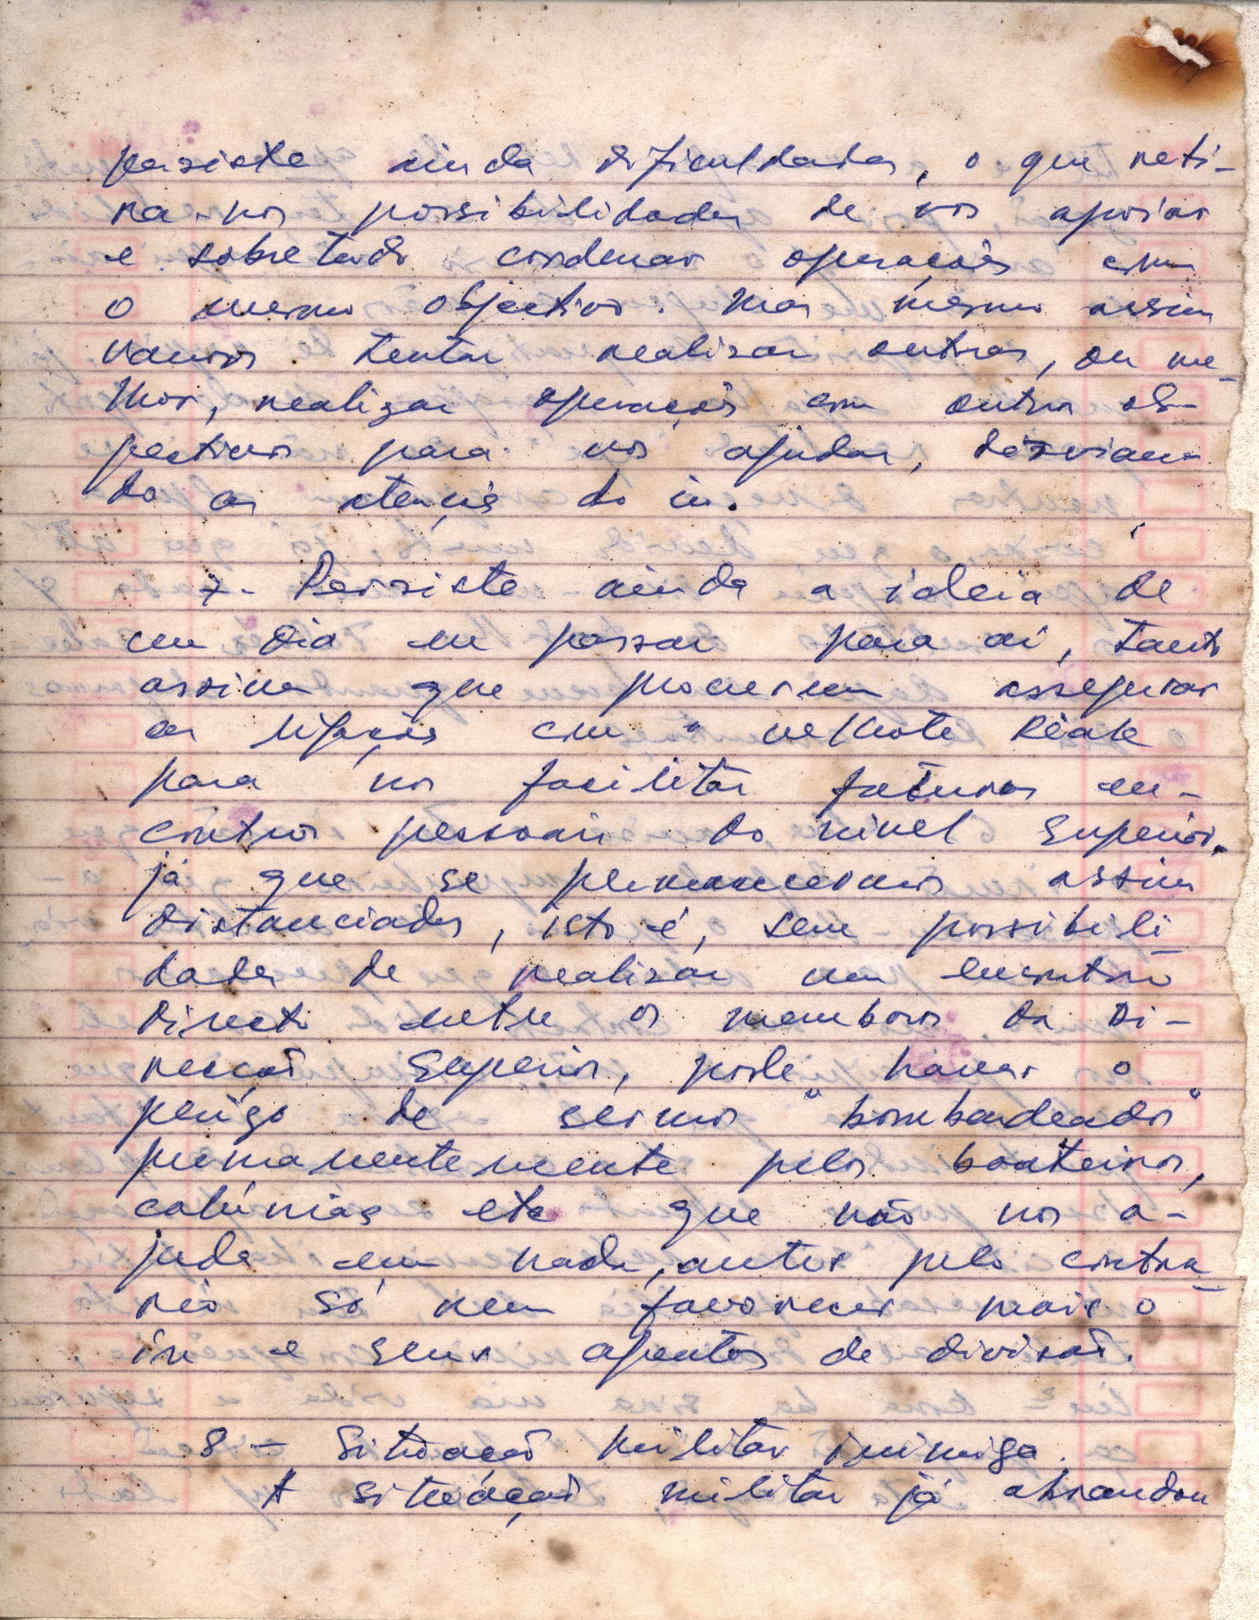 persiste ainda dificuldades, o que reti-
ra-nos possibilidades de vos apoiar
e sobretudo cordenar operações com
o mesmo objectivo. Mas mesmo assim
vamos tentar realizar outras, ou me-
lhor, realizar operações com outros ob-
jectivos para vos ajudar, desvian-
do as atenções do in.
7- Persiste ainda a ideia de
um dia eu passar para aí, tanto
assim que procurem assegurar
as ligações com o
para nos facilitar futuros en-
contros pessoais do nivel superior,
já que se permanecermos assim
distanciados, isto é, sem possibili
dades de realizar um encontro
directo entre os membros da Di-
recção Superior, pode haver o
perigo de sermos "bombardeados"
permanentemente pelos boateiros,
calúnias etc que não nos a-
juda em nada, antes pelo contra-
rio só vem favorecer mais o
in e seus agentes de divisão.
8 - Situação militar inimiga.
A situação militar já abrandou